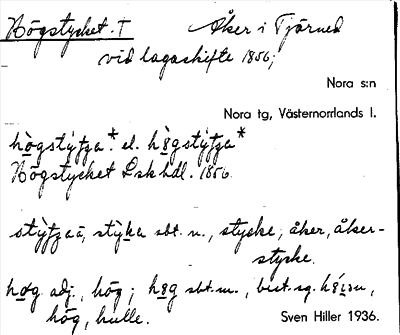 Högstycket. T Åker i Tjärned
vid lagaskifte 1856;
Nora s:n
Nora tg, Västernorrlands l.
hògstýʃʒa* el. høgstýʃʒa*
Högstycket Lskhdl. 1856.
stycke, åker, åker-
stycke.
høg adj., hög; høg sbt. m., best. sg.
hög, kulle.
Sven Hiller 1936.